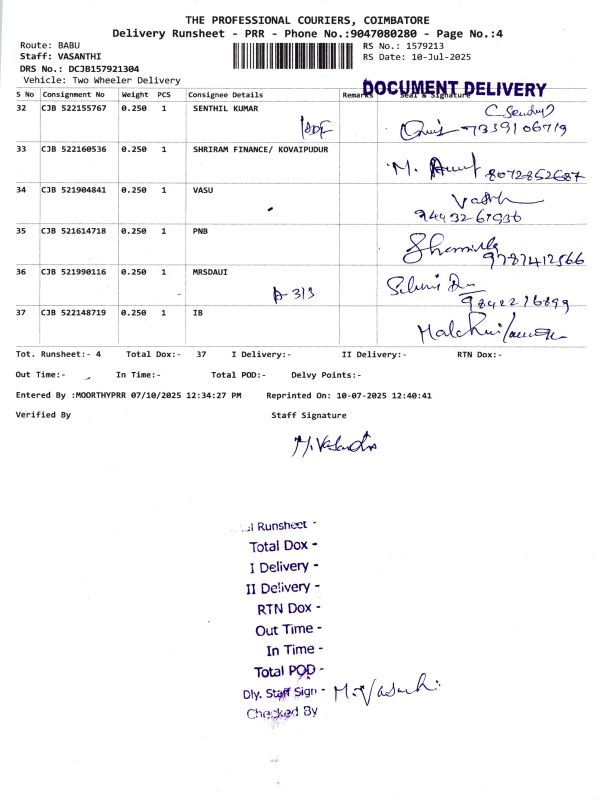 THE PROFESSIONAL COURIERS, COIMBATORE
Delivery Runsheet - PRR - Phone No.:9047080280 - Page No.:4
Route: BABU RS No.: 1579213
Staff: VASANTHI RS Date: 10-Jul-2025
DRS No.: DCJB157921304
Vehicle: Two Wheeler Delivery
DOCUMENT DELIVERY
S No Consignment No Weight PCS Consignee Details Remarks Seal & Signature
32 CJB 522155767 0.250 1 SENTHIL KUMAR
7339106719
33 CJB 522160536 0.250 1 SHRIRAM FINANCE/ KOVAIPUDUR
8072852687
34 CJB 521904841 0.250 1 VASU
35 CJB 521614718 0.250 1 PNB
9787412566
36 CJB 521990116 0.250 1 MRSDAUI
37 CJB 522148719 0.250 1 IB
Tot. Runsheet:- 4 Total Dox:- 37 I Delivery:- II Delivery:- RTN Dox:-
Out Time:- In Time:- Total POD:- Delvy Points:-
Entered By :MOORTHYPRR 07/10/2025 12:34:27 PM Reprinted On: 10-07-2025 12:40:41
Verified By Staff Signature
Runsheet -
Total Dox -
I Delivery -
II Delivery -
RTN Dox -
Out Time -
In Time -
Total POD -
Dly. Staff Sign -
Checked By